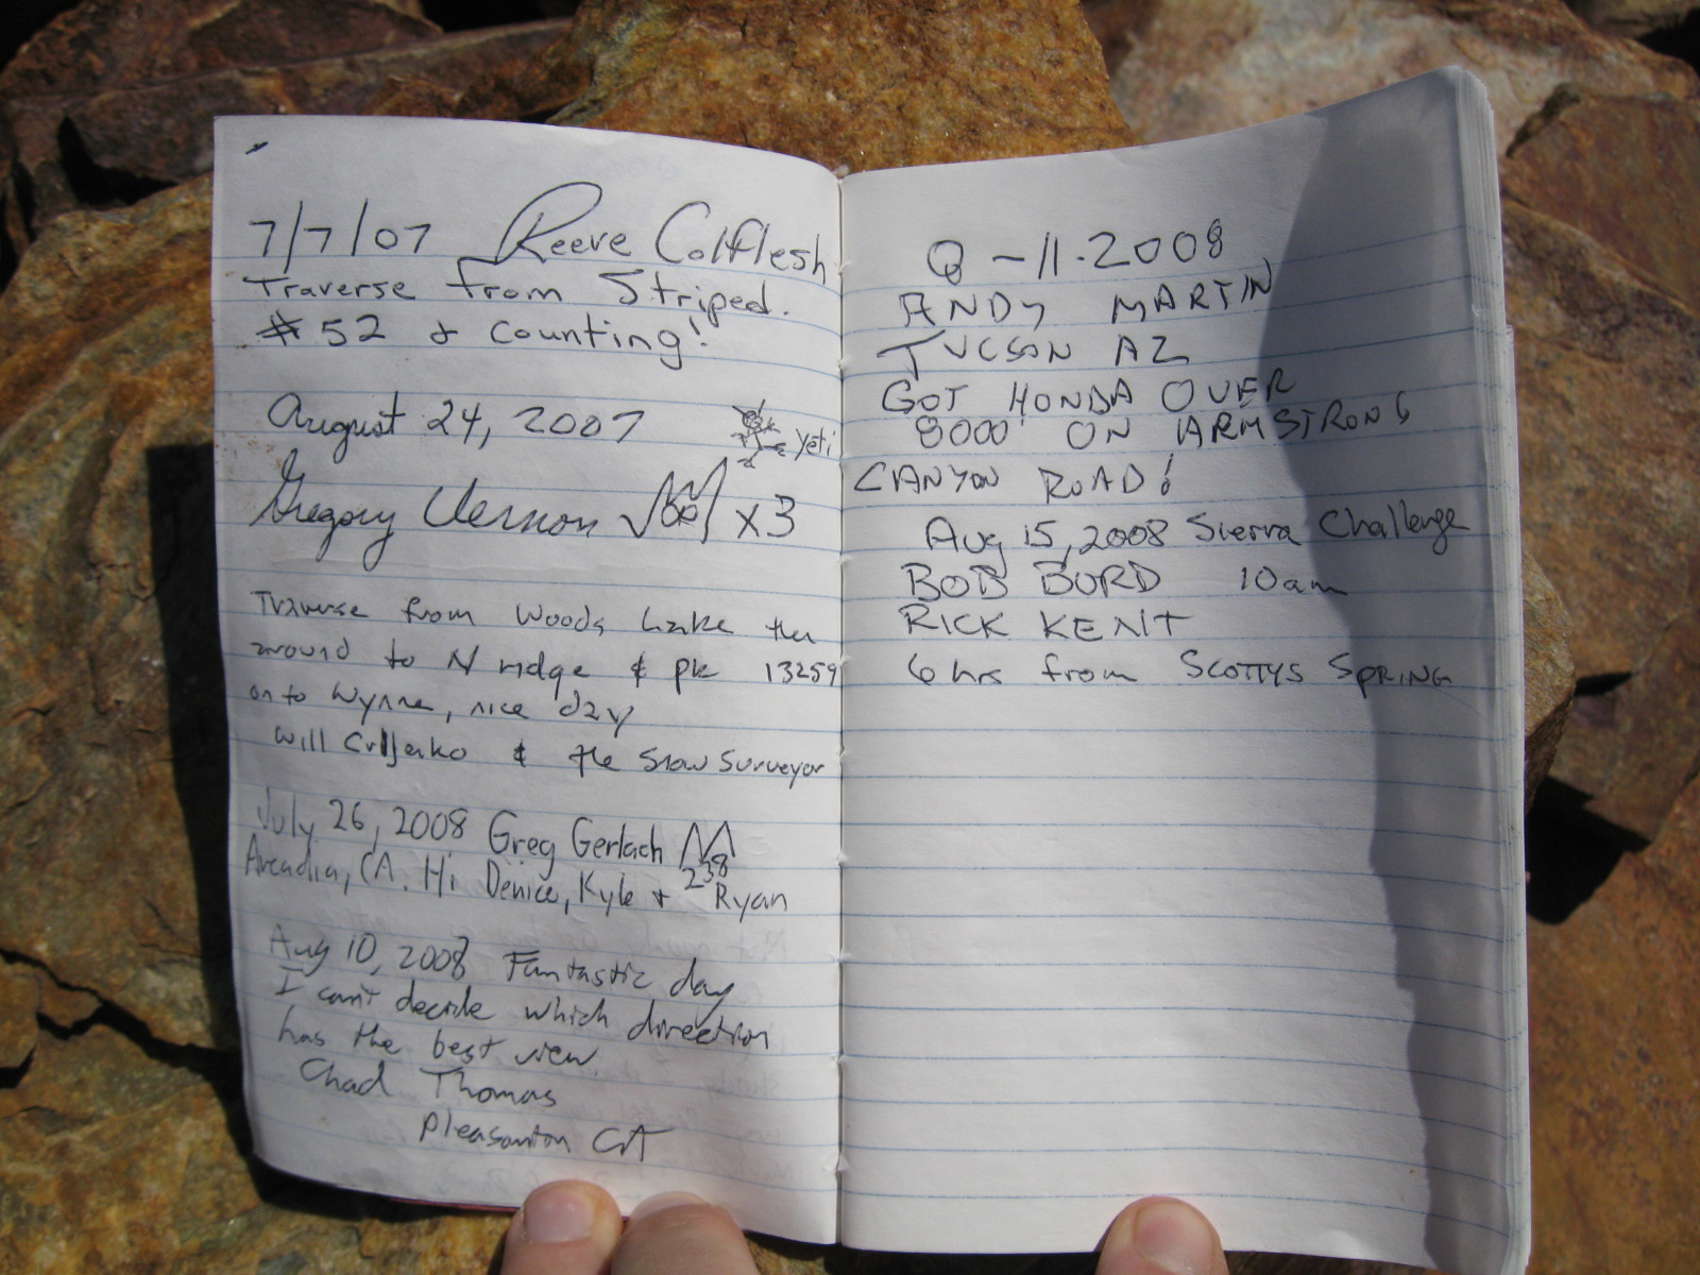 7/7/07 Reeve Colflesh
Traverse from Striped.
#52 & counting!
August 24, 2007
yeti
Gregory Vernon x3
Traverse from Woods Lake then
around to N ridge & pk 13259
on to Wynne, nice day
Will & the Snow Surveyor
July 26, 2008 Greg Gerlach
238
Arcadia, CA. Hi Denice, Kyle + Ryan
Aug 10, 2008 Fantastic day
I can't decide which direction
has the best view.
Chad Thomas
Pleasanton CA
8-11-2008
ANDY MARTIN
TUCSON AZ
GOT HONDA OVER
8000' ON ARMSTRONG
CANYON ROAD!
Aug 15, 2008 Sierra Challenge
BOB BURD 10am
RICK KENT
6 hrs from SCOTTYS SPRING